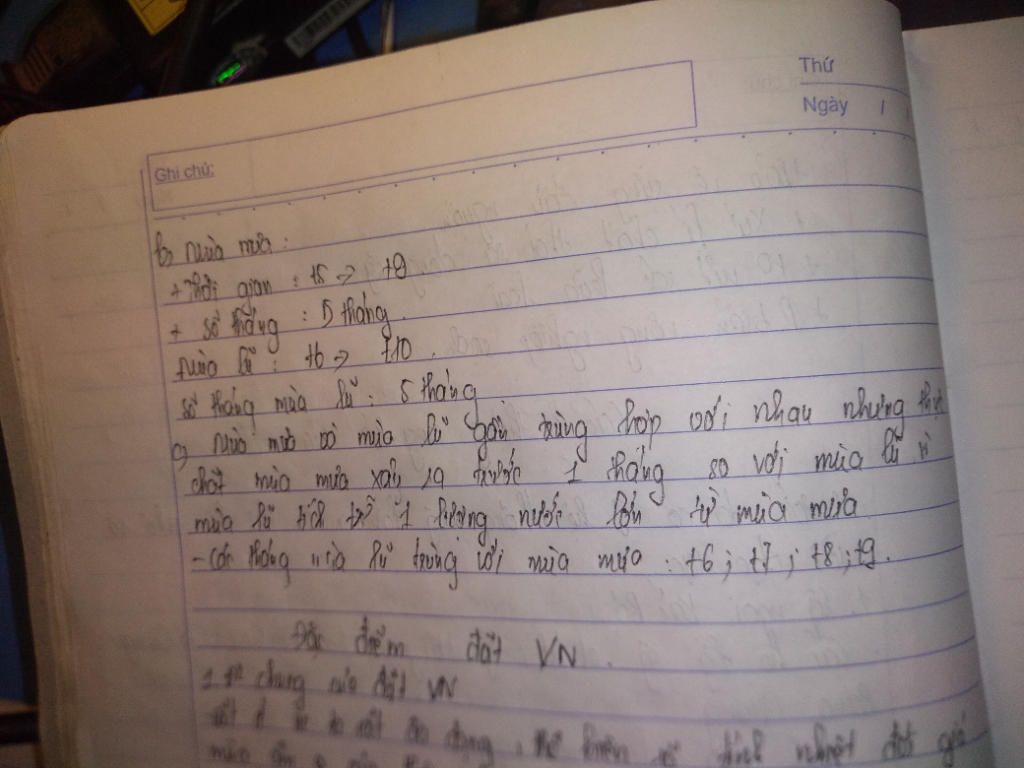 Thứ
Ngày
Ghi chú:
b, mùa mưa:
+ Thời gian : t5 => t9
+ số tháng : 5 tháng.
mùa lũ : t6 => t10.
số tháng mùa lũ : 5 tháng
c, mùa mưa và mùa lũ gần trùng hợp với nhau nhưng thực
chất mùa mưa xảy ra trước 1 tháng so với mùa lũ vì
mùa lũ tích trữ 1 lượng nước lớn từ mùa mưa
- các tháng mùa lũ trùng với mùa mưa : t6 ; t7 ; t8 ; t9.
Đặc điểm đất VN
1 chung của đất VN
đất đa dạng, thể hiện rõ tính nhiệt đới gió
mùa ẩm